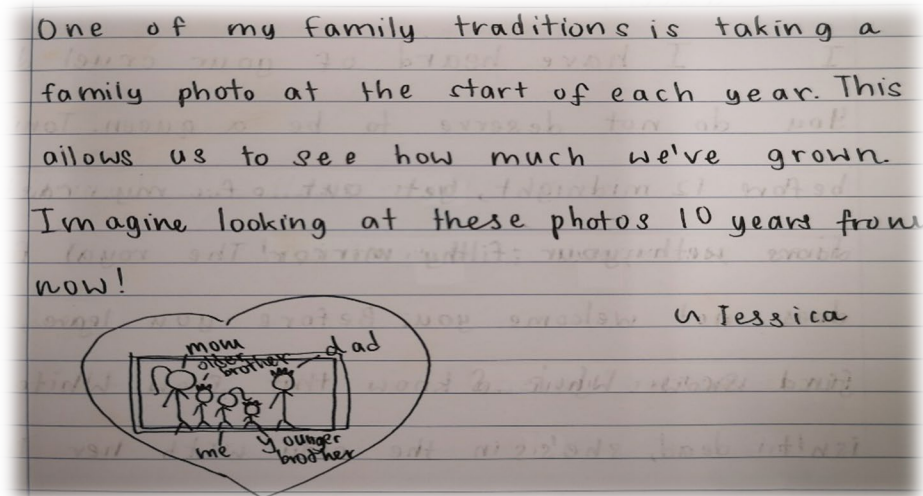 One of my family traditions is taking a
family photo at the start of each year. This
allows us to see how much we've grown.
Imagine looking at these photos 10 years from
now!
Jessica
mom
older
brother
dad
me
younger
brother